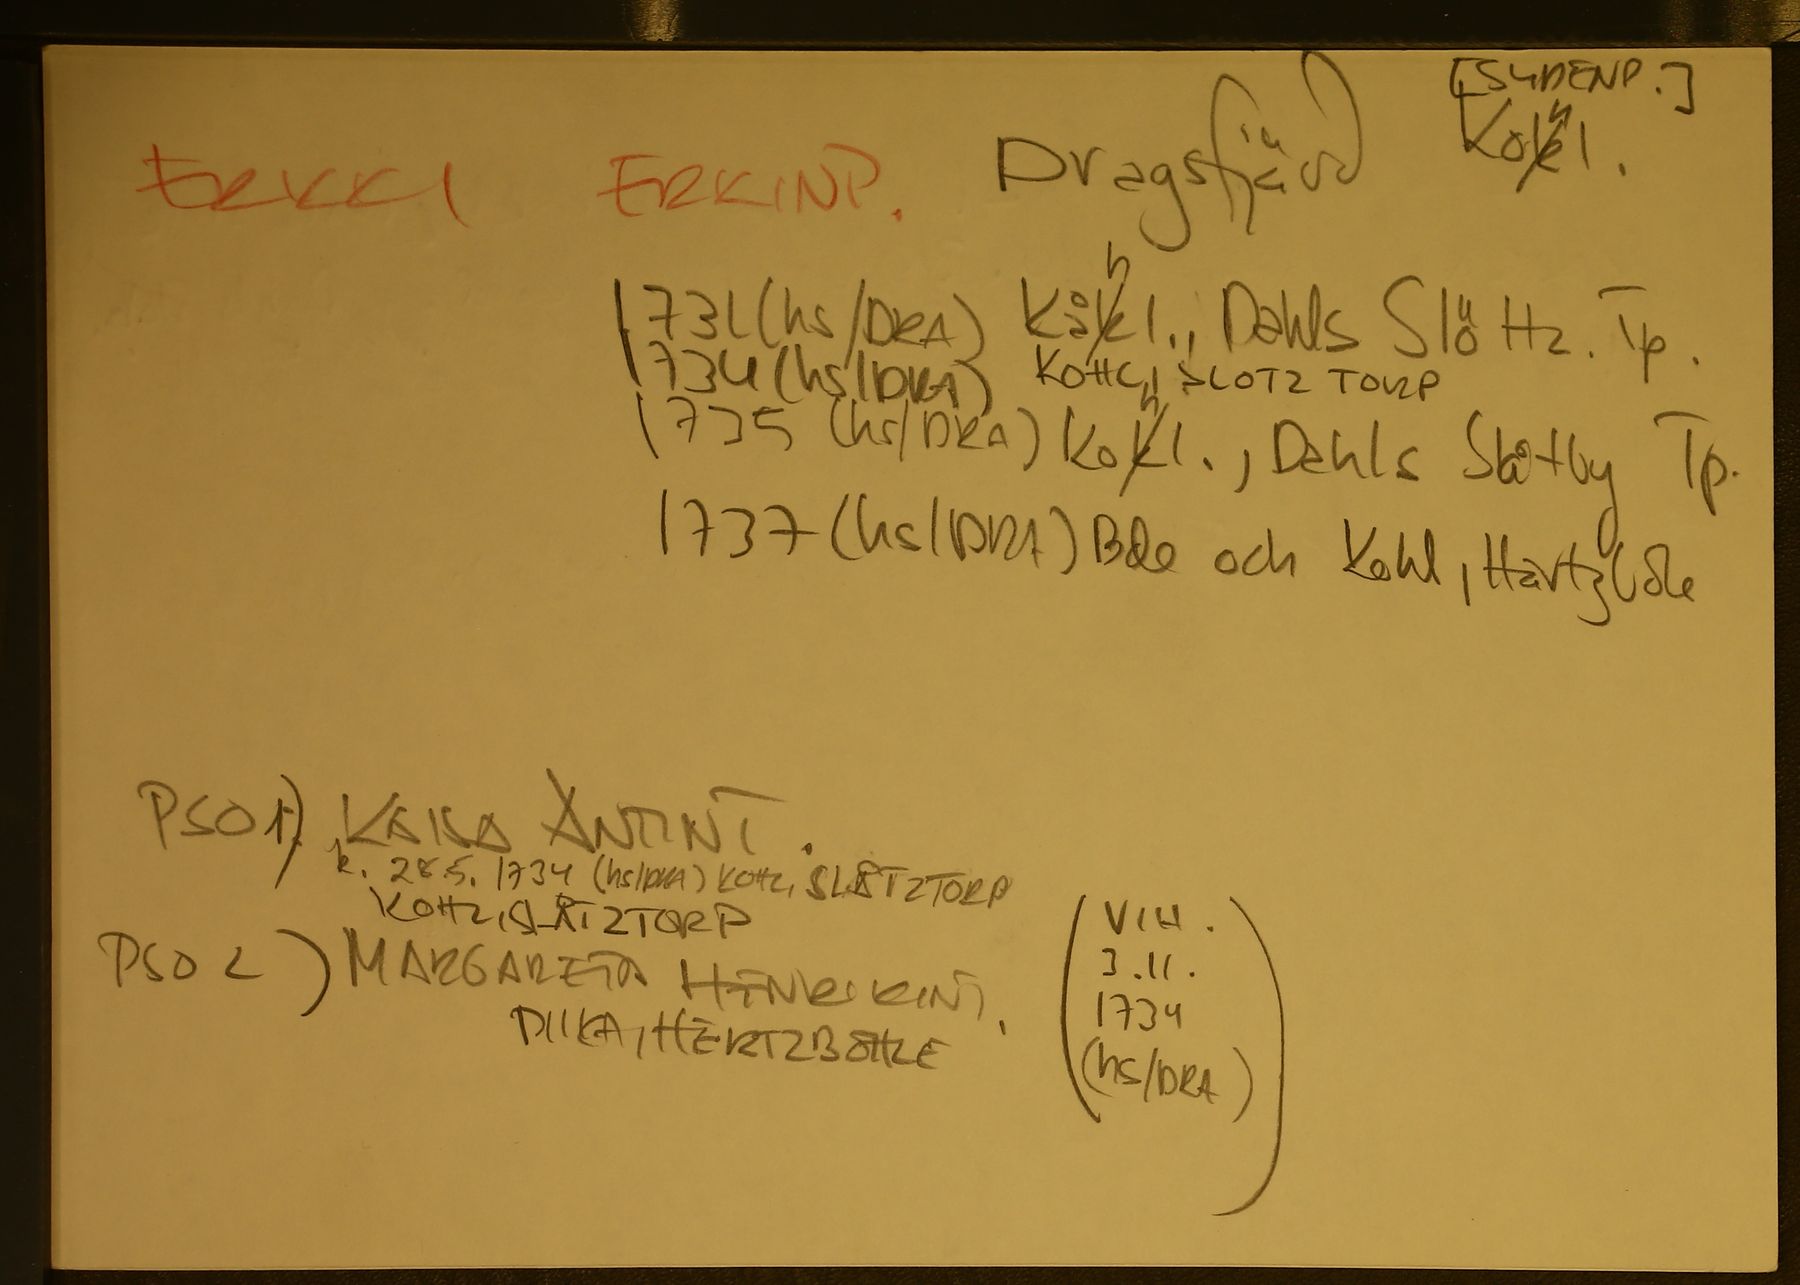 [SYDENP.]
ERKKI ERKINP. Dragsfjärd Kohl.
1731 (hs/DRA) Kåhl., Dahls Slöttz. Tp.
1734 (hs/DRA) KOHL, SLOTZ TORP
1735 (hs/DRA) Kohl., Dahls Slåtby Tp.
1737 (hs/DRA) Bde och Kohl, Hartzböle
PSO 1) KAISA ANTINT.
k. 28.5. 1734 (hs/DRA) KOHL, SLÅTZTORP
KOHL, SLÅTZTORP
PSO 2) MARGARETA HENRIKINT.
PIIKA, HERTZBÖHLE
(VIH.
3.11.
1734
(hs/DRA))